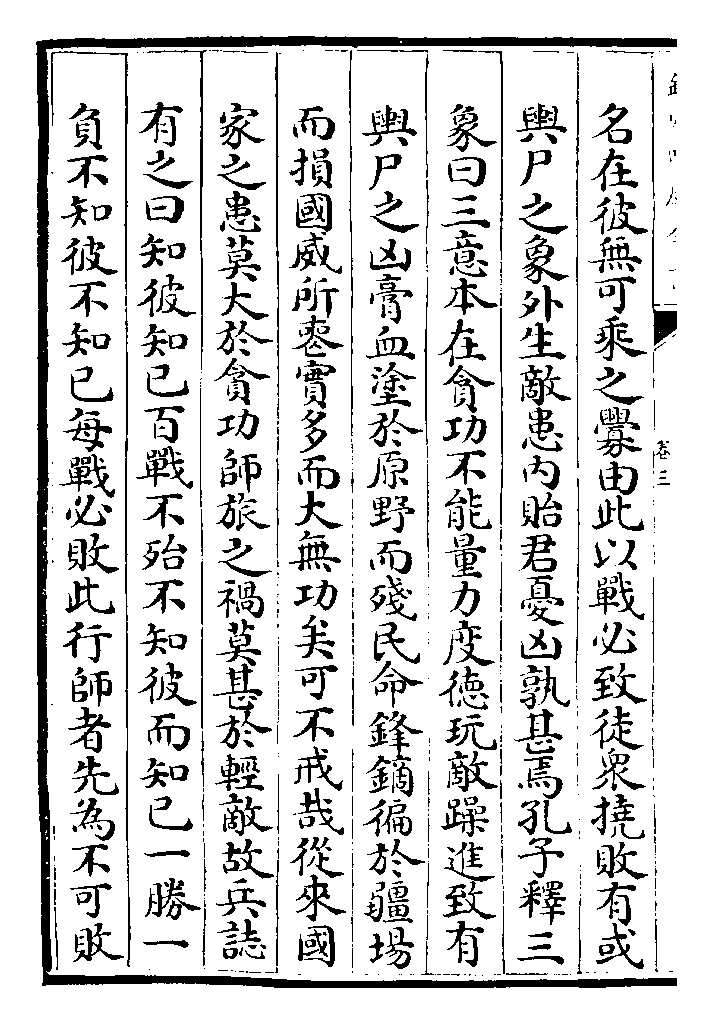 名在彼無可乘之釁由此以戰必致徒衆撓敗有或
輿尸之象外生敵患内貽君憂凶孰甚焉孔子釋三
象曰三意本在貪功不能量力度徳玩敵躁進致有
輿尸之凶膏血塗於原野而殘民命鋒鏑徧於疆場
而損國威所喪實多而大無功矣可不戒哉從來國
家之患莫大於貪功師旅之禍莫甚於輕敵故兵誌
有之曰知彼知已百戰不殆不知彼而知已一勝一
負不知彼不知已每戰必敗此行師者先為不可敗
卷三